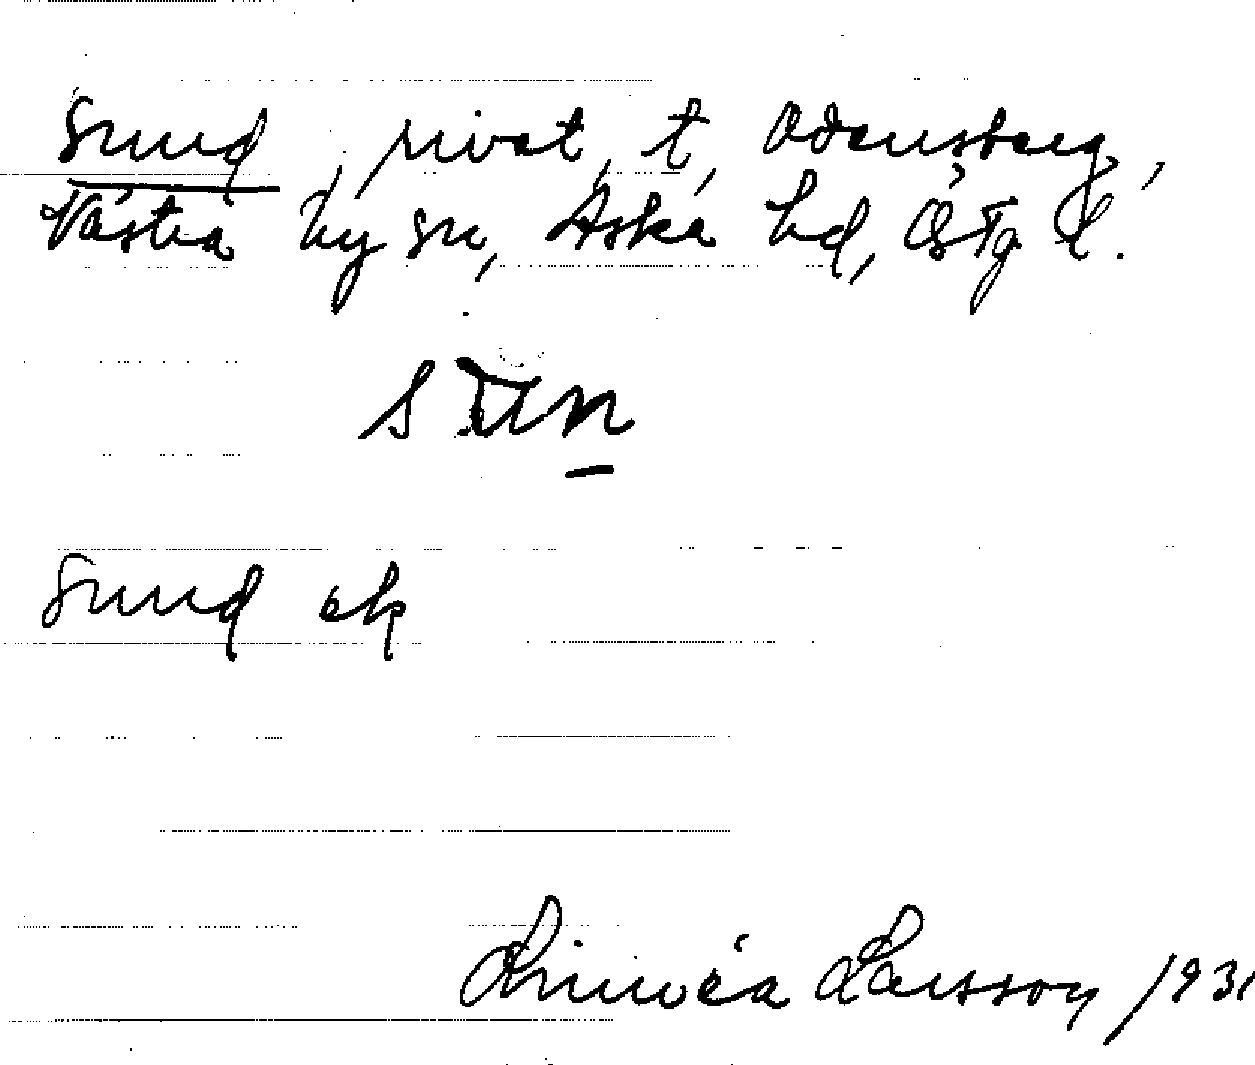 Sund, rivet, t, Odensberg,
Västra Ny sn, Aska hd, Östg l.
Sund ek
Linnéa Larsson 1931